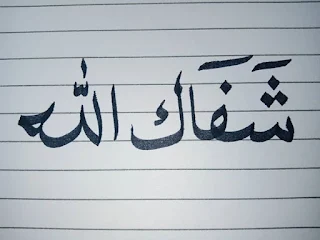 شَفَاك الله